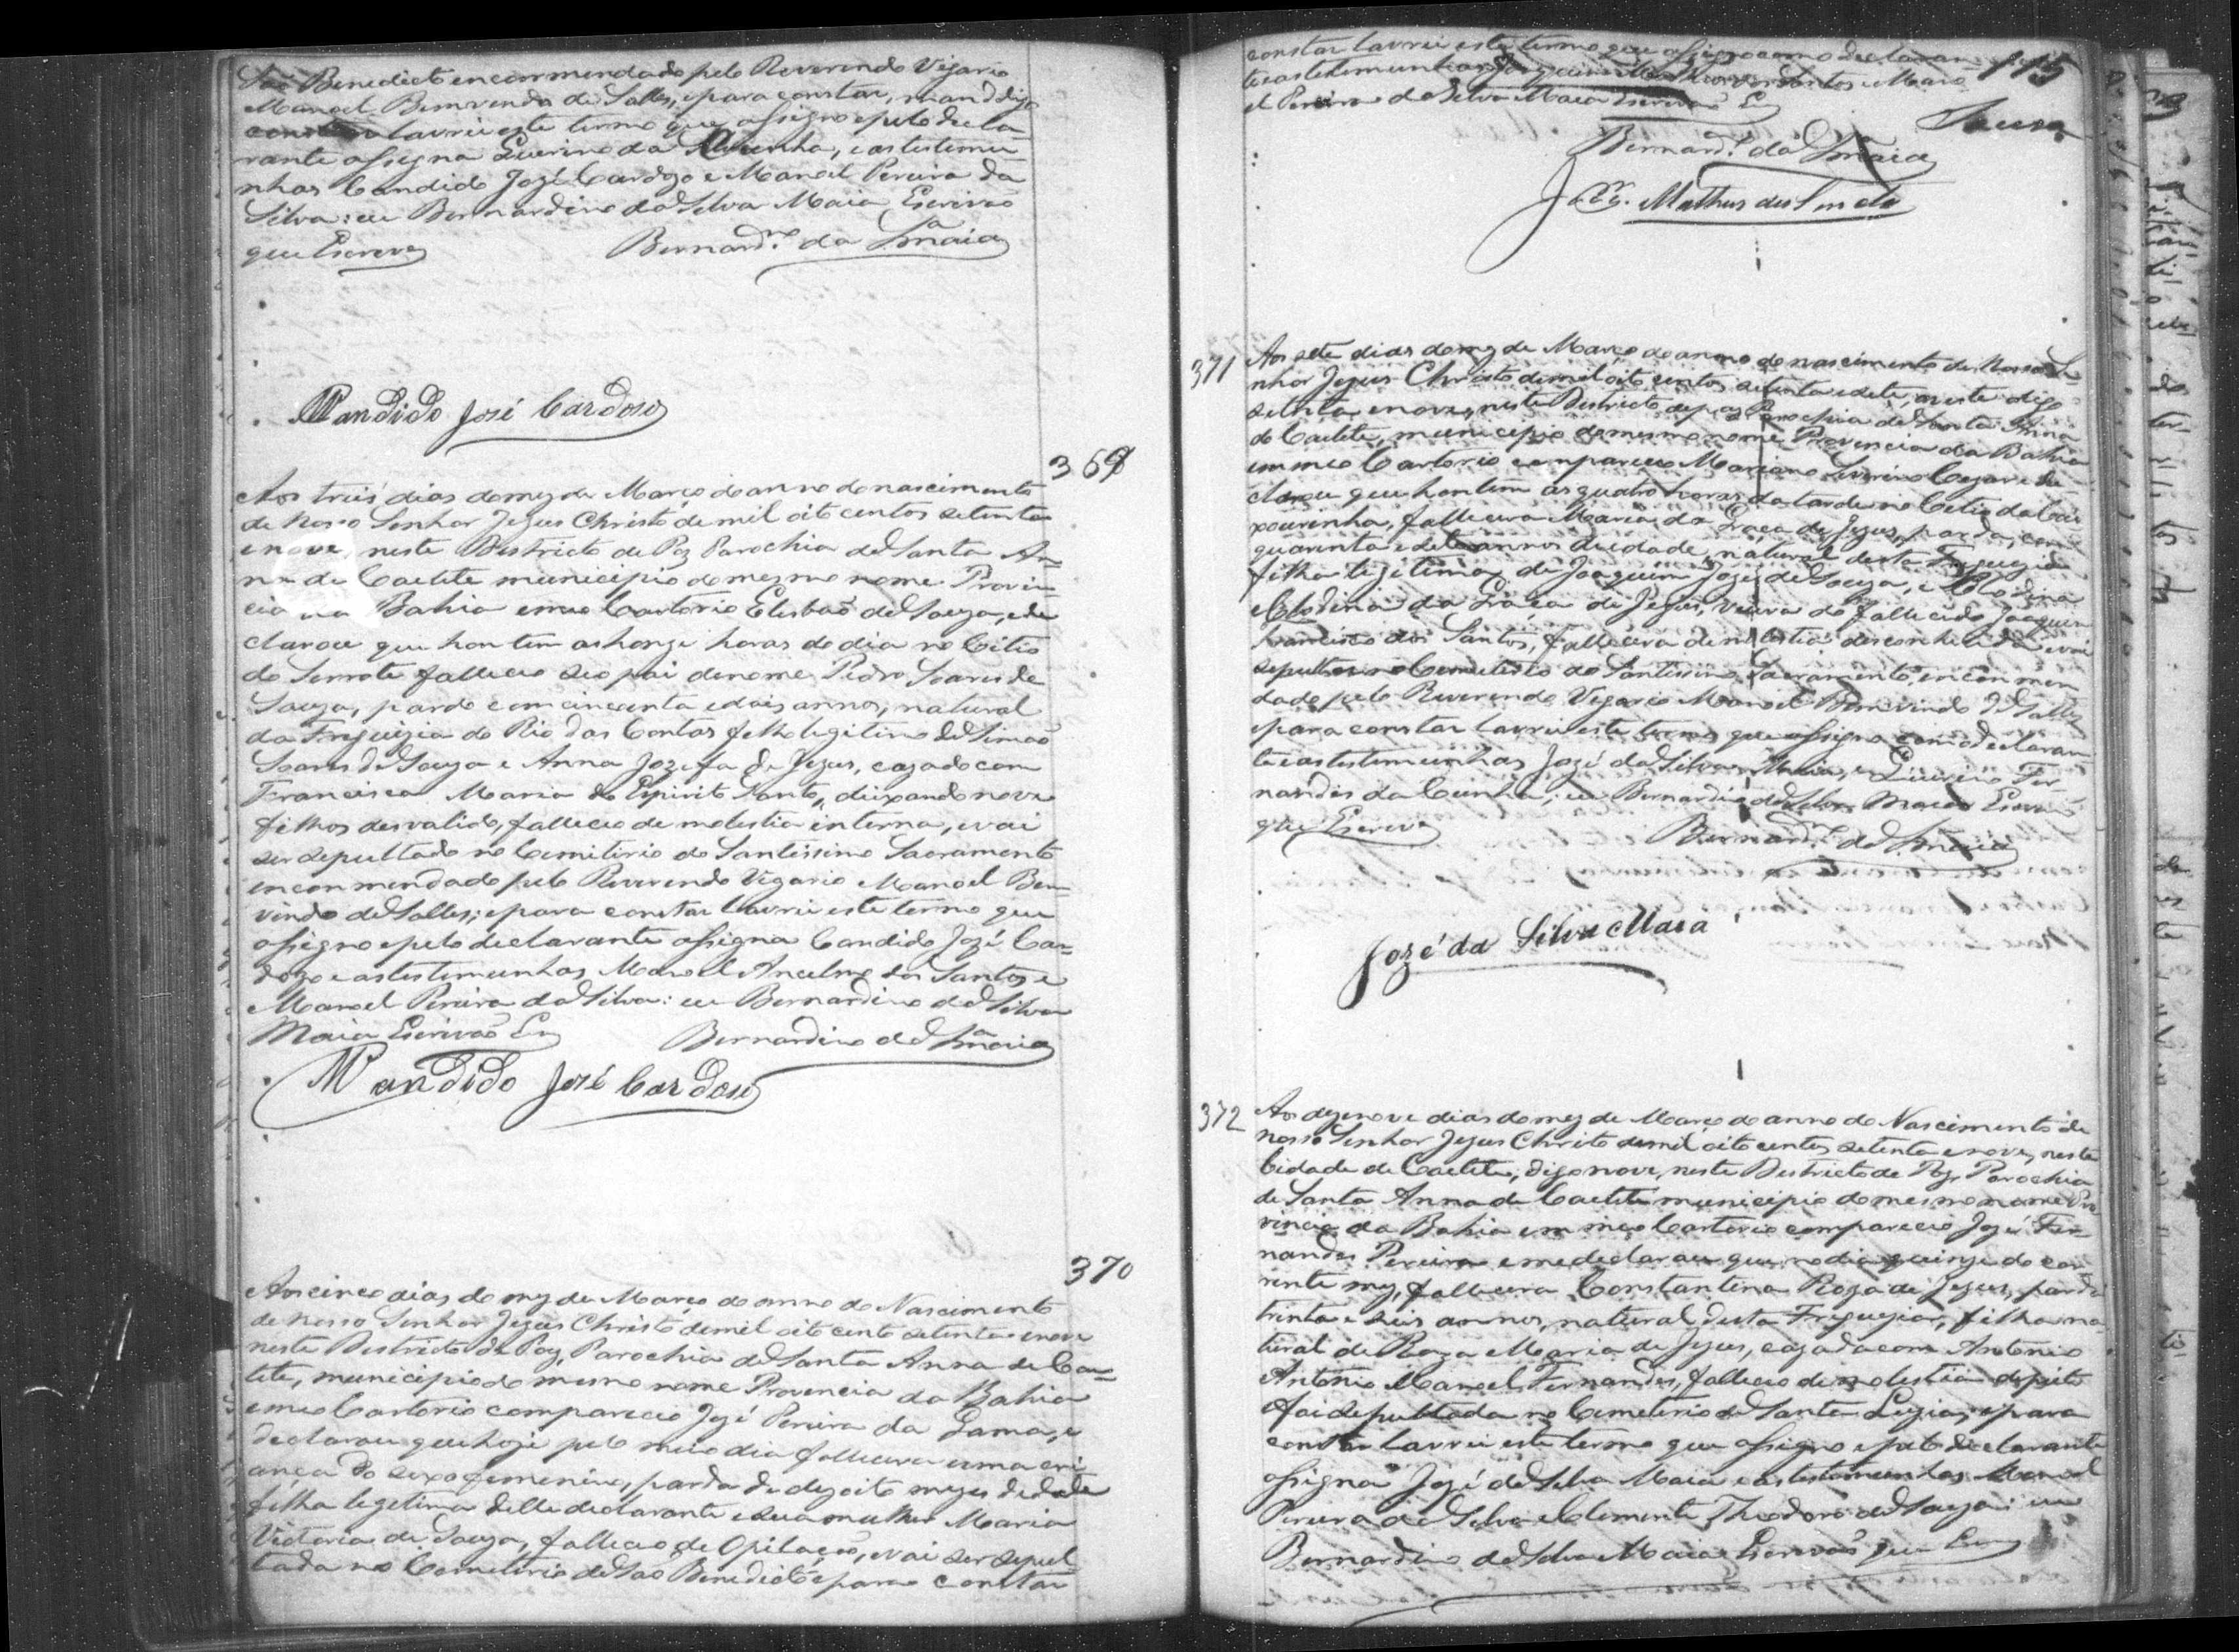 São Benedicto encommendado pelo Reverendo Vigario
Manoel Bemvendo de Salles, epara constar, mand digo
constar lavrei este termo que assigno epelo decla-
rante assigna Querino da Cunha, e as testemu-
nhas Candido José Cardozo e Manoel Pereira da
Silva: eu Bernardino da Silva Maia Escrivão
que Escrevy Bernard.no da S.a Maia
Candido José Cardoso
369
Aos treis dias do mez de Março do anno do nascimento
de Nosso Senhor Jezus Christo de mil oito centos setenta
e nove, neste Destricto de Paz Parochia de Santa An-
na de Caetete municipio do mesmo nome Provin-
cia da Bahia emeo Cartorio Elesbaõ de Souza, e de
clarou que hontem as honze horas do dia no Citio
do Serrote falleceo seo pai denome Pedro Soares de
Souza, pardo com cincoenta e dois annos, natural
da Freguizia do Rio das Contas filho legitimo de Simaõ
Soares de Souza e Anna Jozefa de Jezus, cazado com
Francisca Maria do Espirito Santo, deixando nove
filhos desvalido, falleceo de molestia interna, e vai
ser sepultado no Cemiterio do Santissimo Sacramento
enconmendado pelo Reverendo Vigario Manoel Bem-
vindo de Salles; epara constar lavrei este termo que
assigno epelo declarante assigna Candido José Car-
dozo e as testemunhas Manoel Ancelmo dos Santos e
Manoel Pereira da Silva: eu Bernardino da Silva
Maia Escrivaõ Ey Bernardino da S.a Maia
Candido José Cardoso
370
Aos cinco dias do mez de Março do anno do Nascimento
de Nosso Senhor Jezus Christo de mil oito cento setenta e nove
neste Destricto de Paz, Parochia de Santa Anna de Cae-
tete, municipio do mesmo nome Provencia da Bahia
emeo Cartorio compareceo José Pereira da Gama, e
declarou que hoje pelo meio dia fallecera uma cri
ança do sexo femenino, parda de dezoito mezes de idade
filha legetima delle declarante e sua mulher Maria
Victoria de Souza, falleceo de Opilaçaõ, e vai ser sepul
tada no Cemeterio de Saõ Benedicto epara constar
constar lavrei este termo que assigno como declaran
te e as testemunhas dos Santos e Mano
el Pereira da Silva Maia Escrivaõ Ey
115
Souza
Bernard.o da S.a Maia
Matheus dos
371
Aos sete dias do mez de Março do anno do nascimento de Nosso Se
nhor Jezus Christo de mil oito centos setenta e sete, neste digo
setenta e nove, neste Destricto de paz Parochia de Santa Anna
do Caetete, municipio do mesmo nome Provencia da Bahia
em meo Cartorio compareceo Mariano Severino Cezar e de
clarou que hontem as quatro horas da tarde no Citio da
fallecera Maria da Graça de Jezus, parda, com
quarenta e sete annos de idade, natural desta Freguezia
filha legitima de Joaquim Jozé de Souza, e Clodina
Clodina da Graça de Jezus, viuva do fallecido Joaquim
Francisco dos Santos, fallecera de molestia desconhecida e vai
sepultar no Cemeterio do Santissimo Sacramento, enconmen
dado pelo Reverendo Vigario Manoel Bemvindo de Salles
epara constar lavrei este termo que assigno com o declaran
te e as testemunhas José da Silva Maia, e Querino Fer
nandes da Cunha; eu Bernardino da Silva Maia Escrivaõ
que Escrevy Bernard.no da S.a Maia
José da Silva Maia
372
Aos dezenove dias do mez de Março do anno do Nascimento de
Nosso Senhor Jezus Christo de mil oito centos setenta e nove, nesta
Cidade de Caetete, digo nove, neste Destricto de Paz Parochia
de Santa Anna de Caetete municipio do mesmo nome Pro
vincia da Bahia em meo Cartorio compareceo José Fer-
nandes Pereira e me declarou que no dia quinze do cor
rente mez, fallecera Constantina Roza de Jezus, parda
trinta e seis annos, natural desta Freguezia, filha na-
tural de Roza Maria de Jezus, cazada com Antonio
Antonio Manoel Fernandes, falleceo de molestia de peito
foi sepultada no Cemeterio de Santa Luzia; epara
constar lavrei este termo que assigno e pelo declarante
assigna José da Silva Maia e as testemunhas Manoel
Pereira da Silva e Clemente Theodoro de Souza: eu
Bernardino da Silva Maia Escrivaõ que Ey